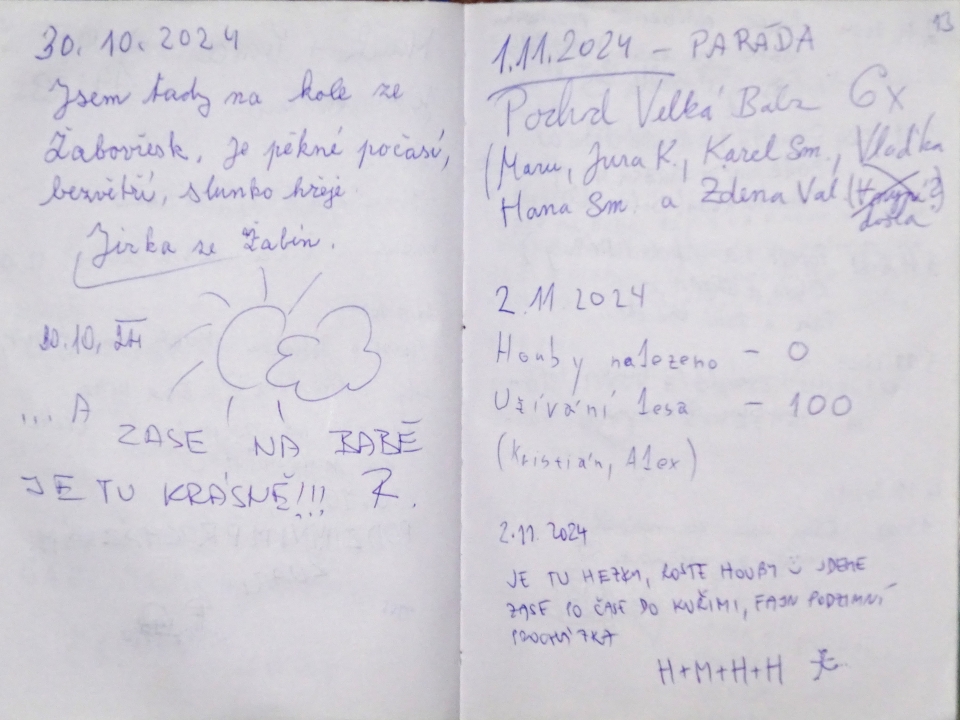 30. 10. 2024
Jsem tady na kole ze
Žabovřesk. Je pěkné počasí,
bezvětří, slunko hřeje
Jirka ze Žabin.
30.10. 24
... A
ZASE NA BABĚ
JE TU KRÁSNĚ!!! R.
13
1.11.2024 - PARÁDA
Pochod Velká Baba 6x
(Maru, Jura K., Karel Sm., Vlaďka
Hana Sm. a Zdena Val.
došla
2.11 2024
Houby nalezeno - 0
Užívání lesa - 100
(Kristián, Alex)
2.11. 2024
JE TU HEZKY, ROSTE HOUBY JDEME
ZASE PO ČASE DO KUŘIMI, FAJN PODZIMNÍ
PROCHÁZKA
H+M+H+H